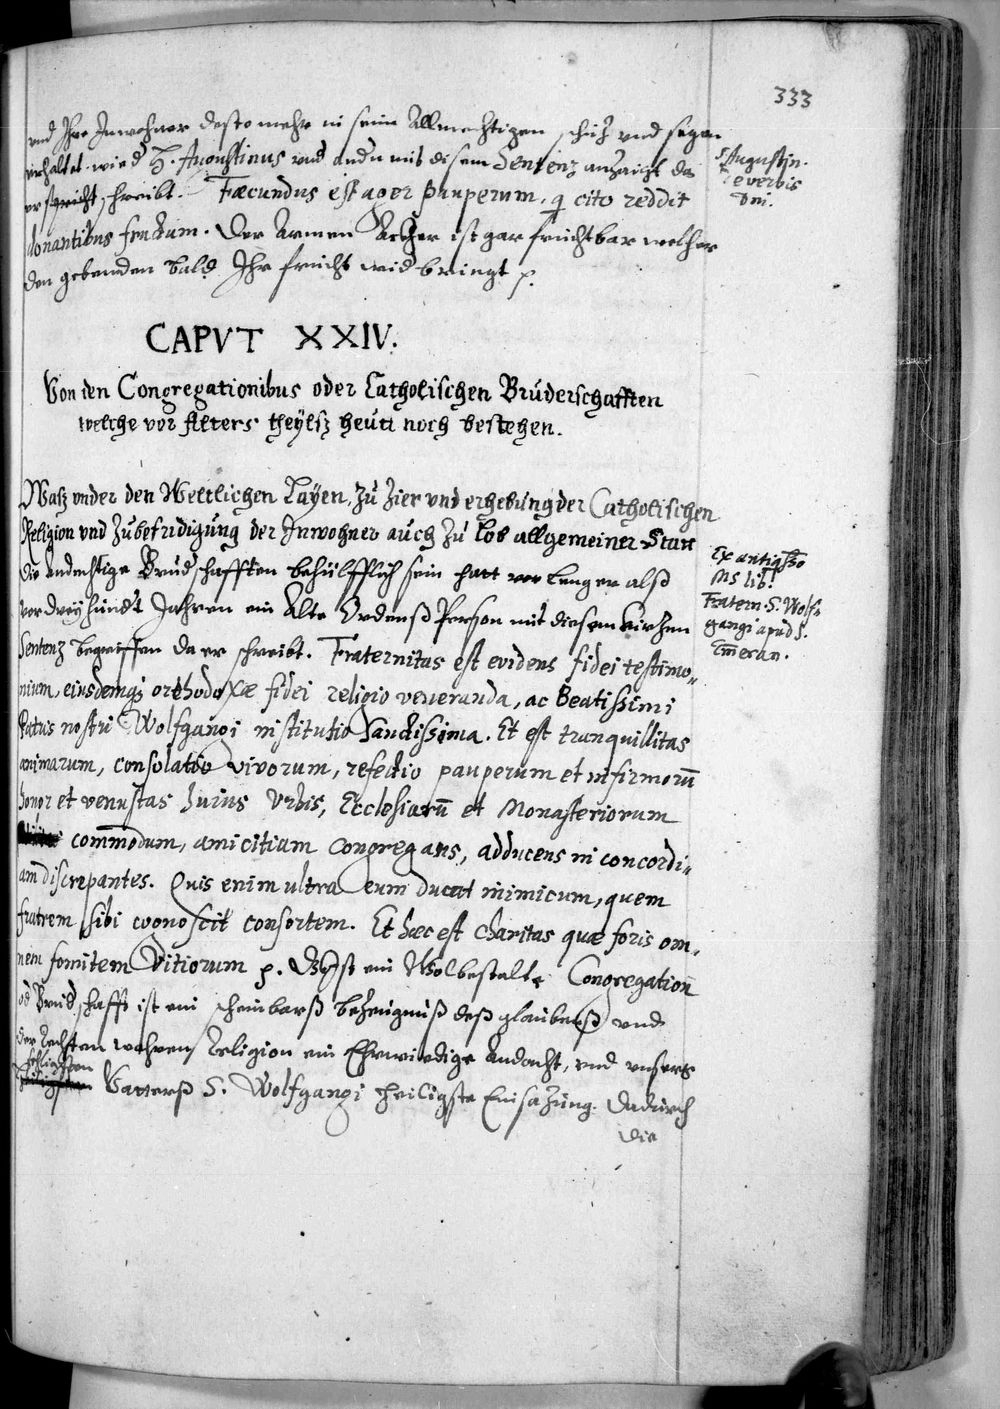 333
vnd Ihre Inwohner desto mehr in seim Allmechtigen schuz vnd segen
erhaltet. wie d H. Augustinus vnd and'n mit disem Sentenz anzaigt da
er spricht schreibt. Fæcundus est ager pauperum, q cito reddit
donantibus fructum. Der Armen Ackher ist gar fruchtbar welcher
den gebenden bald Ihr frucht wid bringt p.
S Augustin.
de verbis
Dni.
CAPVT XXIV.
Von den Congregationibus oder Catholischen Brúderschafften
welche vor Alters theÿlsz heuti noch bestehen.
Wasz vnder den Weltlichen Laÿen, zú Zier vnd erhebúng der Catholischen
Religion vnd Zúbefridigúng der Inwohner aúch zú lob allgemeiner Statt
die andechtige Bruédschafften behülfflich sein hatt vor lenger alß
vor dreÿhúnd't Jahren ein Alte Ordenß Person mit diesem kurzen
Sentenz begriffen da er schreibt. Fraternitas est evidens fidei testimo-
nium, eiusdemq; orthodoxæ fidei religio veneranda, ac Beatissimi
Patris nostri Wolfgangi institutio Sanctissima. Et est tranquillitas
animarum, consolatio vivorum, refectio pauperum et infirmorū
honor et venustas huius Urbis, Ecclesiarū et Monasteriorum
commōdum, amicitiam congregans, adducens in concordi-
am discrepantes. Quis enim ultra eum ducat inimicum, quem
fratrem sibi cognoscit consortem. Et hæc est charitas quæ foris om-
nem fomitem Vitiorum p. Dß ist ein Wolbestalte Congregation
od Bruédschafft ist ein scheinbarß bezeugniß deß glaubenß vnd
der rechten wahren Religion ein Ehrwirdige Andacht, vnd vnsers
seeligsten
Vatterß S. Wolfgangi heiligste Einsazúng. Dadúrch
die
Ex antiqsso
Ms lib!
Fratern. S. Wolf-
gangi apud S.
Emeran.